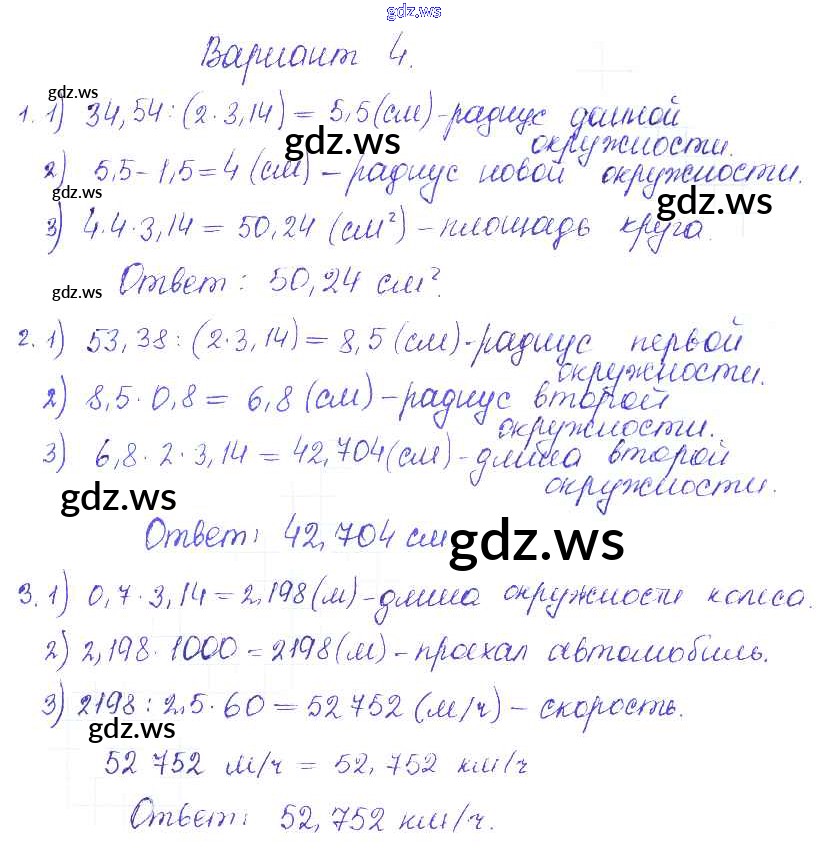 gdz.ws
Вариант 4.
gdz.ws
1. 1) 34,54 : (2·3,14) = 5,5 (см) - радиус данной
окружности.
gdz.ws
2) 5,5 - 1,5 = 4 (см) - радиус новой окружности.
gdz.ws
gdz.ws
3) 4·4·3,14 = 50,24 (см²) - площадь круга.
Ответ: 50,24 см².
gdz.ws
2. 1) 53,38 : (2·3,14) = 8,5 (см) - радиус первой
окружности.
2) 8,5 · 0,8 = 6,8 (см) - радиус второй
окружности.
3) 6,8 · 2 · 3,14 = 42,704 (см) - длина второй
окружности.
gdz.ws
Ответ: 42,704 см
gdz.ws
3. 1) 0,7 · 3,14 = 2,198 (м) - длина окружности колеса.
2) 2,198 · 1000 = 2198 (м) - проехал автомобиль.
3) 2198 : 2,5 · 60 = 52 752 (м/ч) - скорость.
gdz.ws
52 752 м/ч = 52,752 км/ч
Ответ: 52,752 км/ч.
gdz.ws